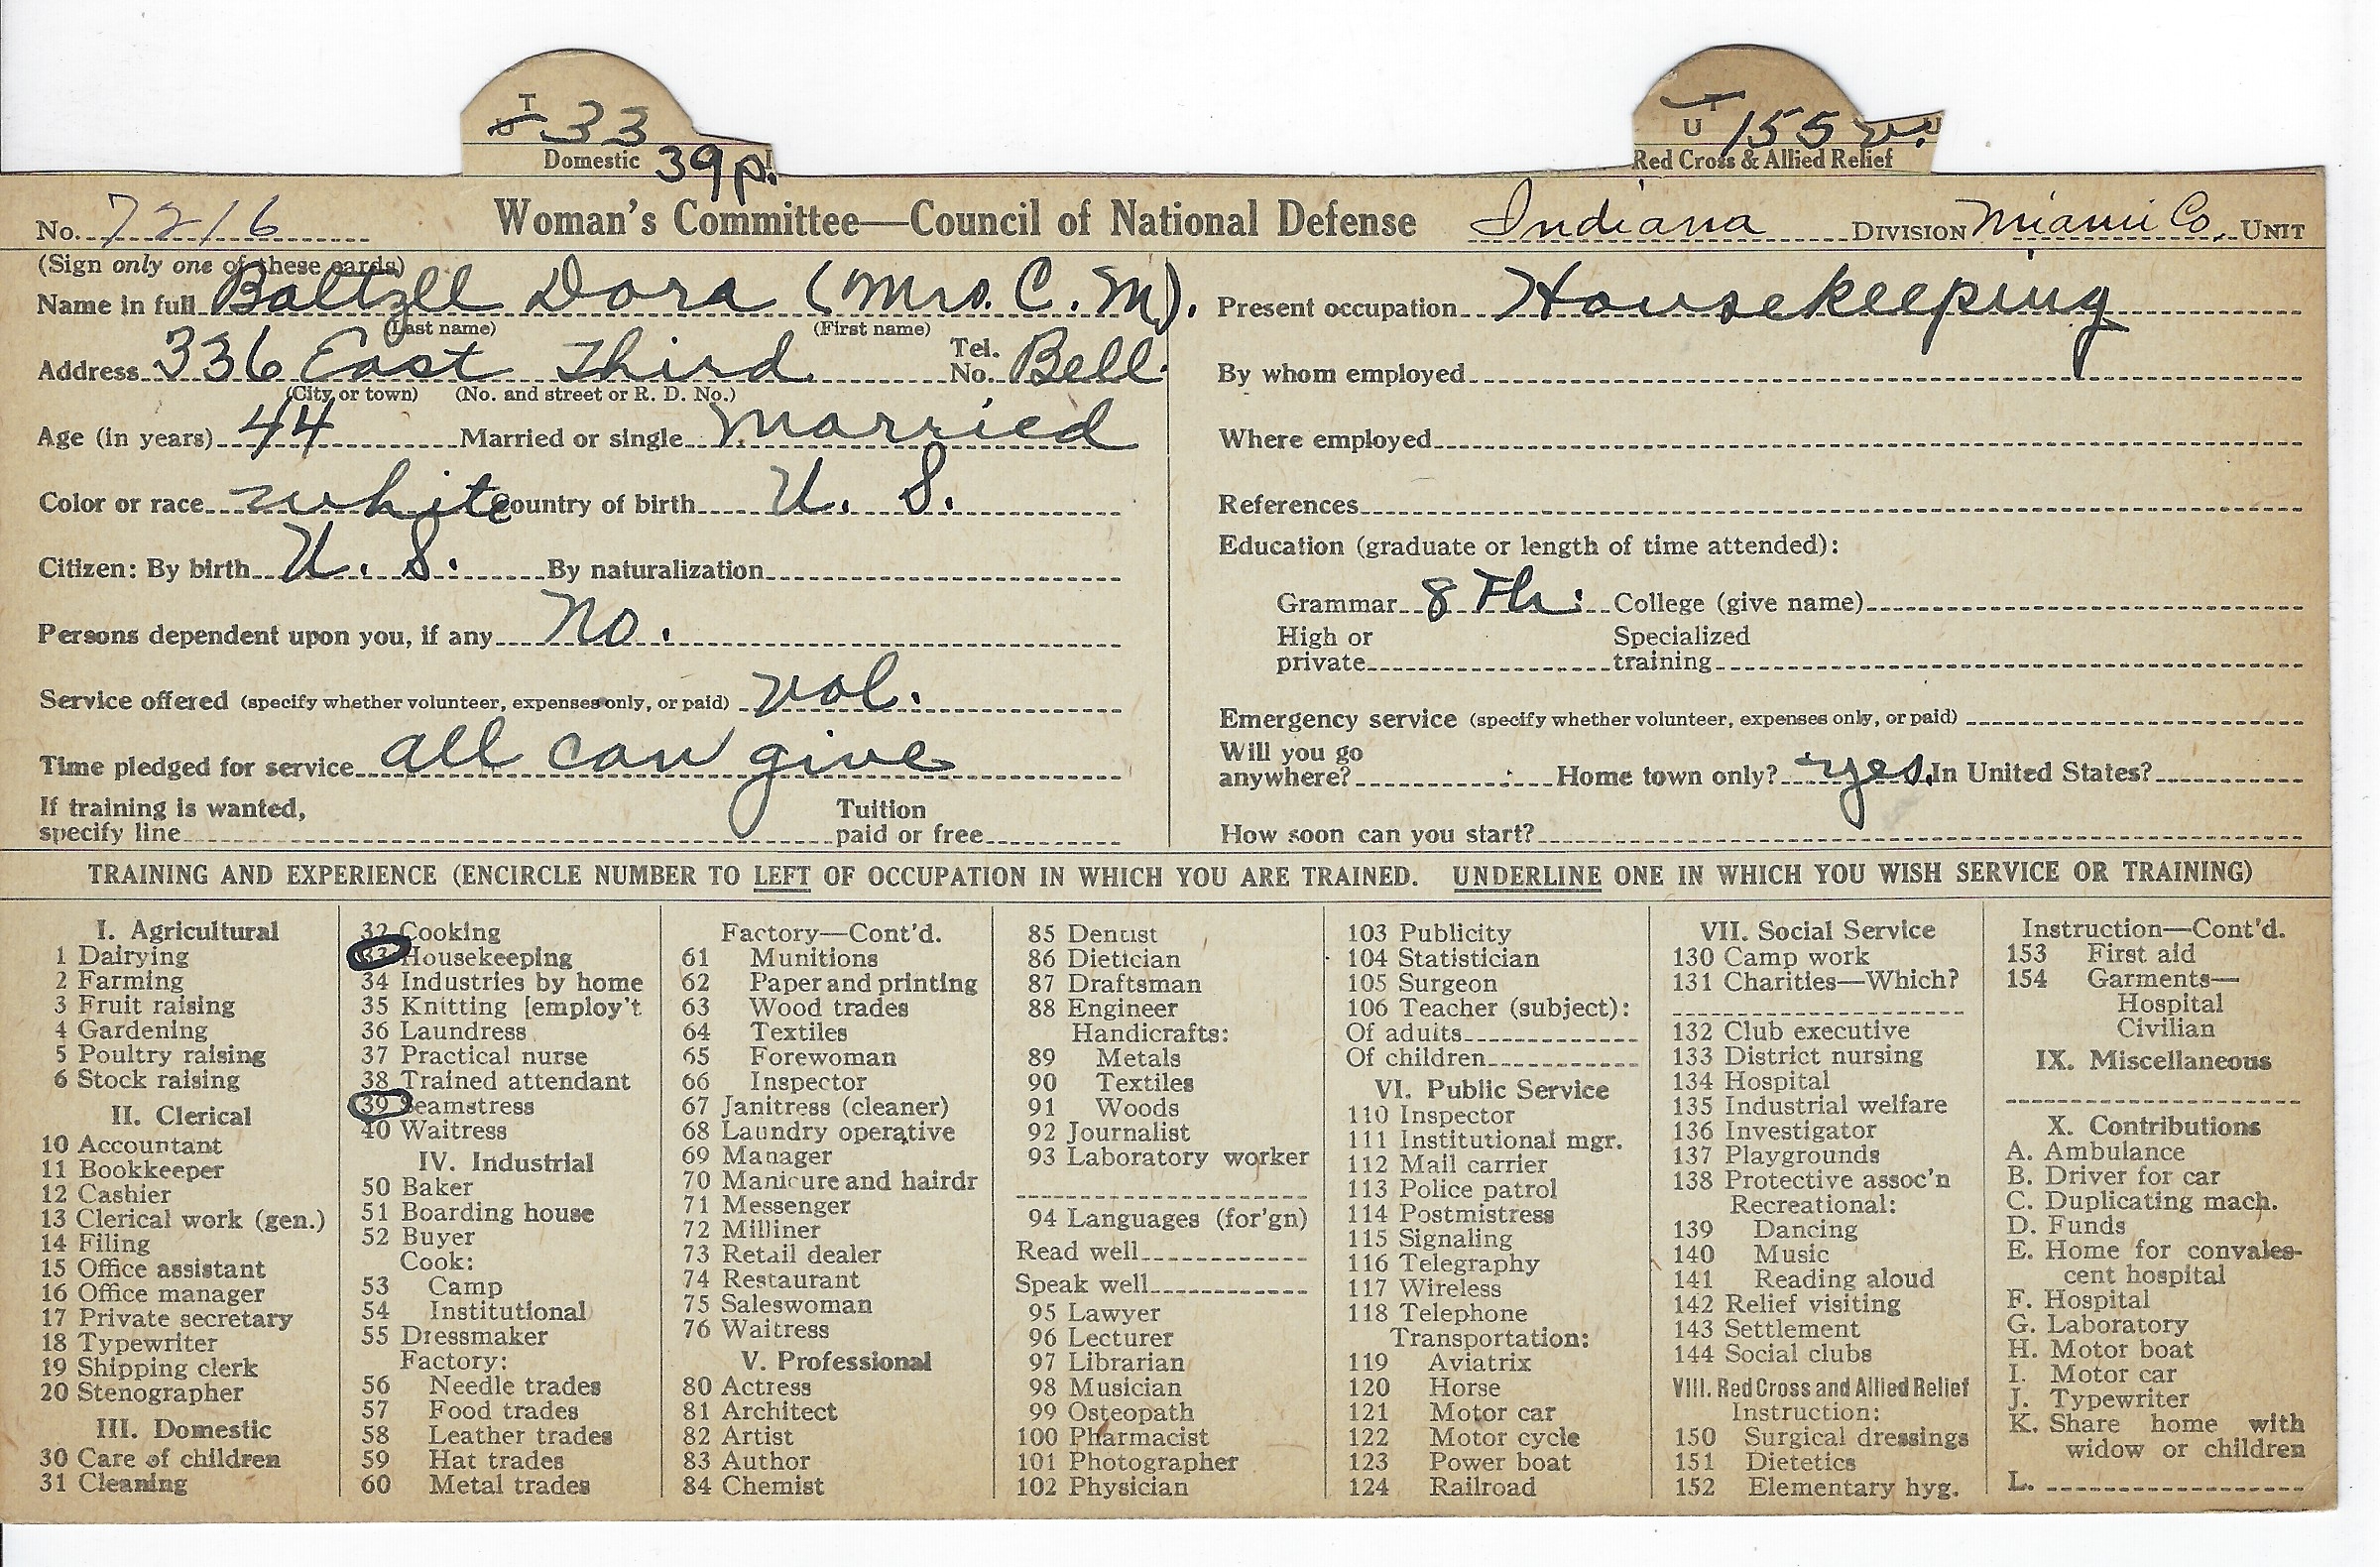 T
U 33
Domestic 39 p.
T
U 155 v.
Red Cross & Allied Relief
No. 7216 Woman's Committee—Council of National Defense Indiana DIVISION Miami Co. UNIT
(Sign only one of these cards)
Name in full Baltzell Dora (Mrs. C. M).
(Last name) (First name)
Address 336 East Third Tel. No. Bell.
(City or town) (No. and street or R. D. No.)
Age (in years) 44 Married or single married
Color or race white Country of birth U. S.
Citizen: By birth U. S. By naturalization
Persons dependent upon you, if any No.
Service offered (specify whether volunteer, expenses only, or paid) vol.
Time pledged for service all can give
If training is wanted, specify line Tuition paid or free
Present occupation Housekeeping
By whom employed
Where employed
References
Education (graduate or length of time attended):
Grammar 8 Th. College (give name)
High or private Specialized training
Emergency service (specify whether volunteer, expenses only, or paid)
Will you go anywhere? Home town only? yes. In United States?
How soon can you start?
TRAINING AND EXPERIENCE (ENCIRCLE NUMBER TO LEFT OF OCCUPATION IN WHICH YOU ARE TRAINED. UNDERLINE ONE IN WHICH YOU WISH SERVICE OR TRAINING)
I. Agricultural
1 Dairying
2 Farming
3 Fruit raising
4 Gardening
5 Poultry raising
6 Stock raising
II. Clerical
10 Accountant
11 Bookkeeper
12 Cashier
13 Clerical work (gen.)
14 Filing
15 Office assistant
16 Office manager
17 Private secretary
18 Typewriter
19 Shipping clerk
20 Stenographer
III. Domestic
30 Care of children
31 Cleaning
32 Cooking
33 Housekeeping
34 Industries by home
35 Knitting [employ't
36 Laundress
37 Practical nurse
38 Trained attendant
39 Seamstress
40 Waitress
IV. Industrial
50 Baker
51 Boarding house
52 Buyer
Cook:
53 Camp
54 Institutional
55 Dressmaker
Factory:
56 Needle trades
57 Food trades
58 Leather trades
59 Hat trades
60 Metal trades
Factory—Cont'd.
61 Munitions
62 Paper and printing
63 Wood trades
64 Textiles
65 Forewoman
66 Inspector
67 Janitress (cleaner)
68 Laundry operative
69 Manager
70 Manicure and hairdr
71 Messenger
72 Milliner
73 Retail dealer
74 Restaurant
75 Saleswoman
76 Waitress
V. Professional
80 Actress
81 Architect
82 Artist
83 Author
84 Chemist
85 Dentist
86 Dietician
87 Draftsman
88 Engineer
Handicrafts:
89 Metals
90 Textiles
91 Woods
92 Journalist
93 Laboratory worker
94 Languages (for'gn)
Read well
Speak well
95 Lawyer
96 Lecturer
97 Librarian
98 Musician
99 Osteopath
100 Pharmacist
101 Photographer
102 Physician
103 Publicity
104 Statistician
105 Surgeon
106 Teacher (subject):
Of adults
Of children
VI. Public Service
110 Inspector
111 Institutional mgr.
112 Mail carrier
113 Police patrol
114 Postmistress
115 Signaling
116 Telegraphy
117 Wireless
118 Telephone
Transportation:
119 Aviatrix
120 Horse
121 Motor car
122 Motor cycle
123 Power boat
124 Railroad
VII. Social Service
130 Camp work
131 Charities—Which?
132 Club executive
133 District nursing
134 Hospital
135 Industrial welfare
136 Investigator
137 Playgrounds
138 Protective assoc'n
Recreational:
139 Dancing
140 Music
141 Reading aloud
142 Relief visiting
143 Settlement
144 Social clubs
VIII. Red Cross and Allied Relief
Instruction:
150 Surgical dressings
151 Dietetics
152 Elementary hyg.
Instruction—Cont'd.
153 First aid
154 Garments—
Hospital
Civilian
IX. Miscellaneous
X. Contributions
A. Ambulance
B. Driver for car
C. Duplicating mach.
D. Funds
E. Home for convales-
cent hospital
F. Hospital
G. Laboratory
H. Motor boat
I. Motor car
J. Typewriter
K. Share home with
widow or children
L.